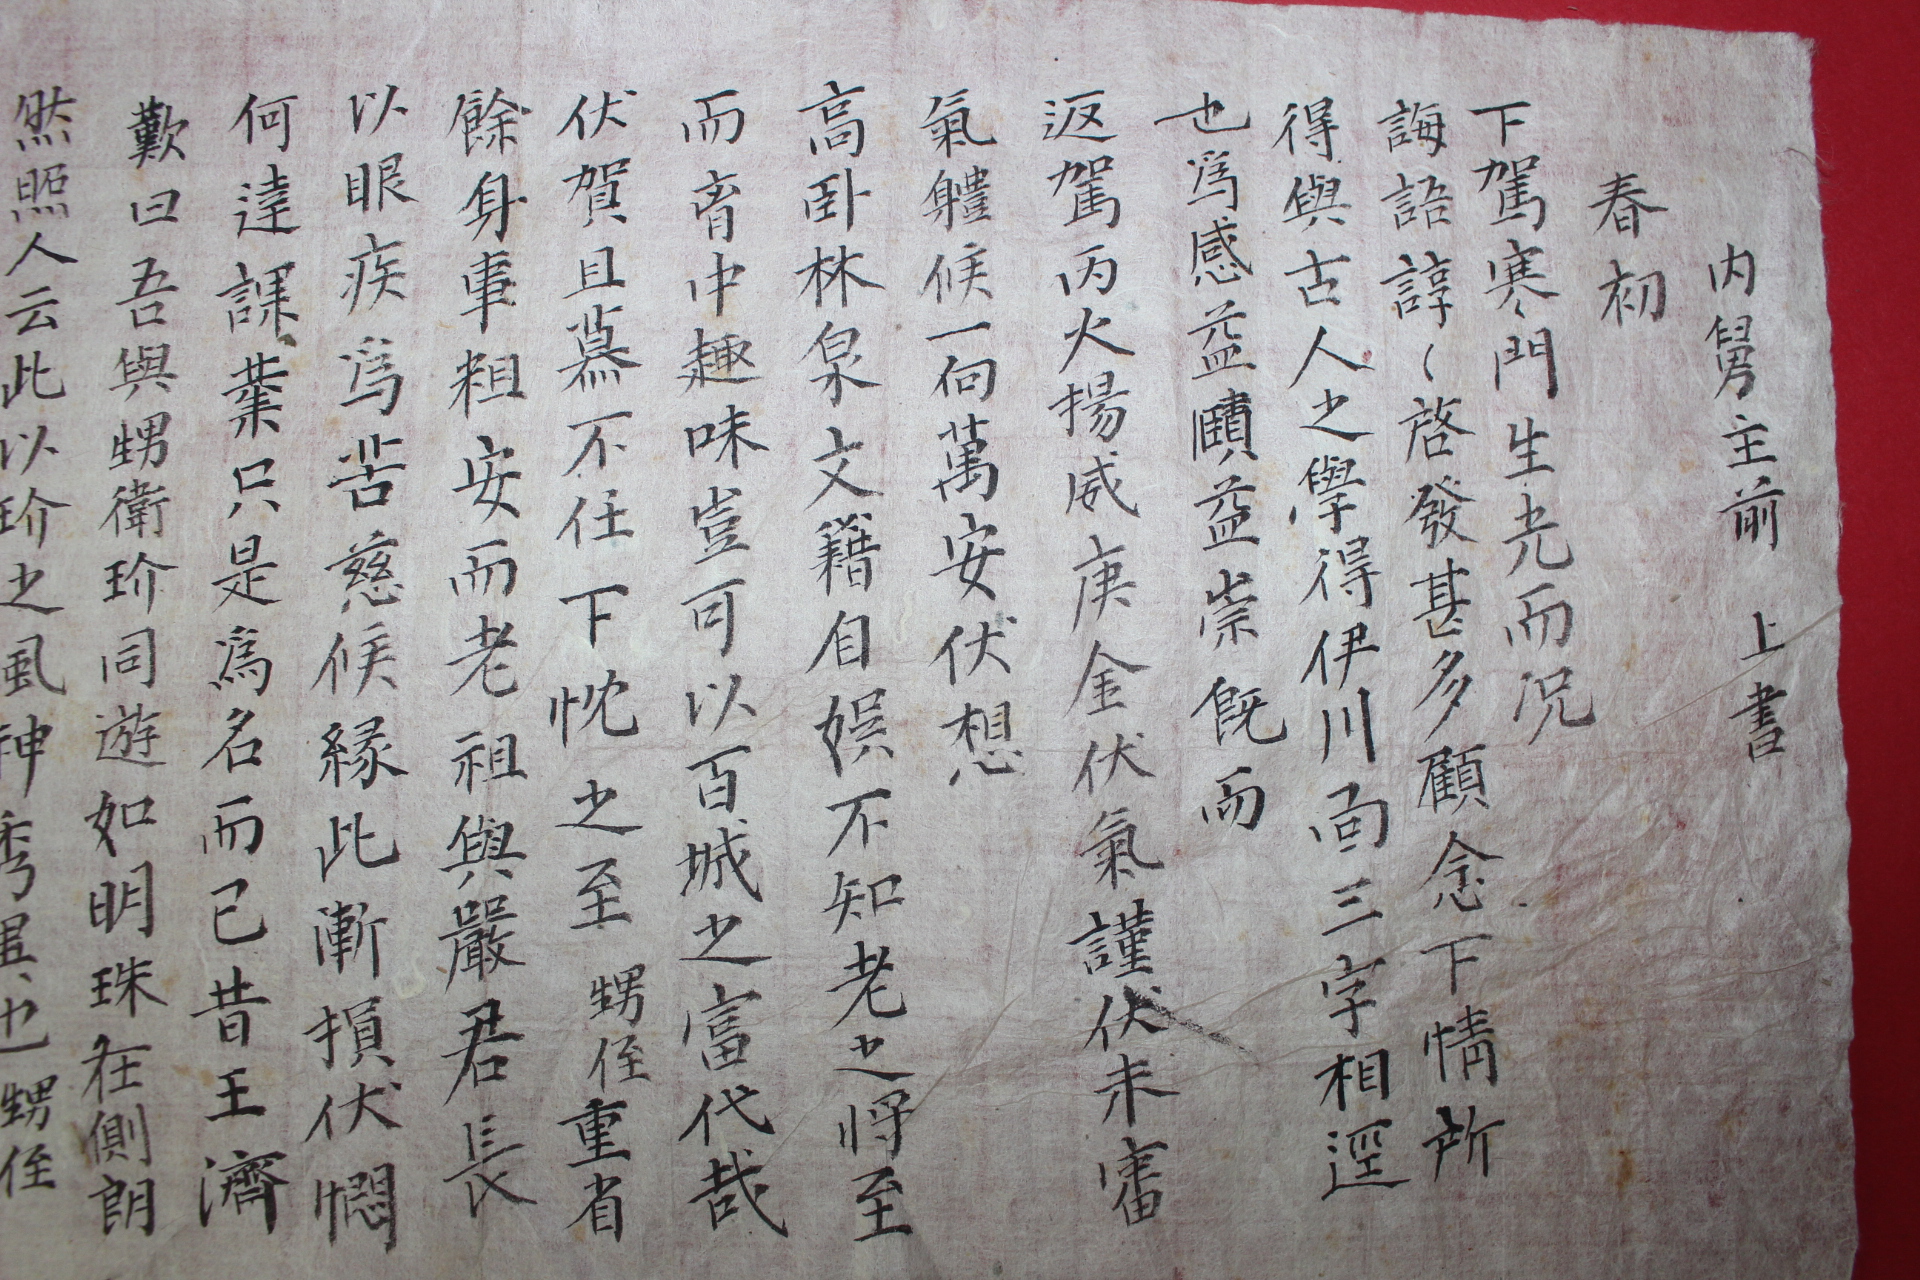 內舅主前 上書
春初
下駕寒門生光而況
誨語諄〻啓發甚多顧念下情所
得與古人之學得伊川面三字相逕
也爲感益賾益崇旣而
返駕丙火揚威庚金伏氣謹伏未審
氣體候一向萬安伏想
高卧林泉文籍自娛不知老之將至
而育中趣味豈可以百城之富代哉
伏賀且慕不任下忱之至 甥侄重省
餘身事粗安而老祖與嚴君長
以眼疾爲苦慈候緣此漸損伏悶
何達課業只是爲名而已昔王濟
歎曰吾與甥衛玠同遊如明珠在側朗
然照人云此以玠之風神秀異也甥侄